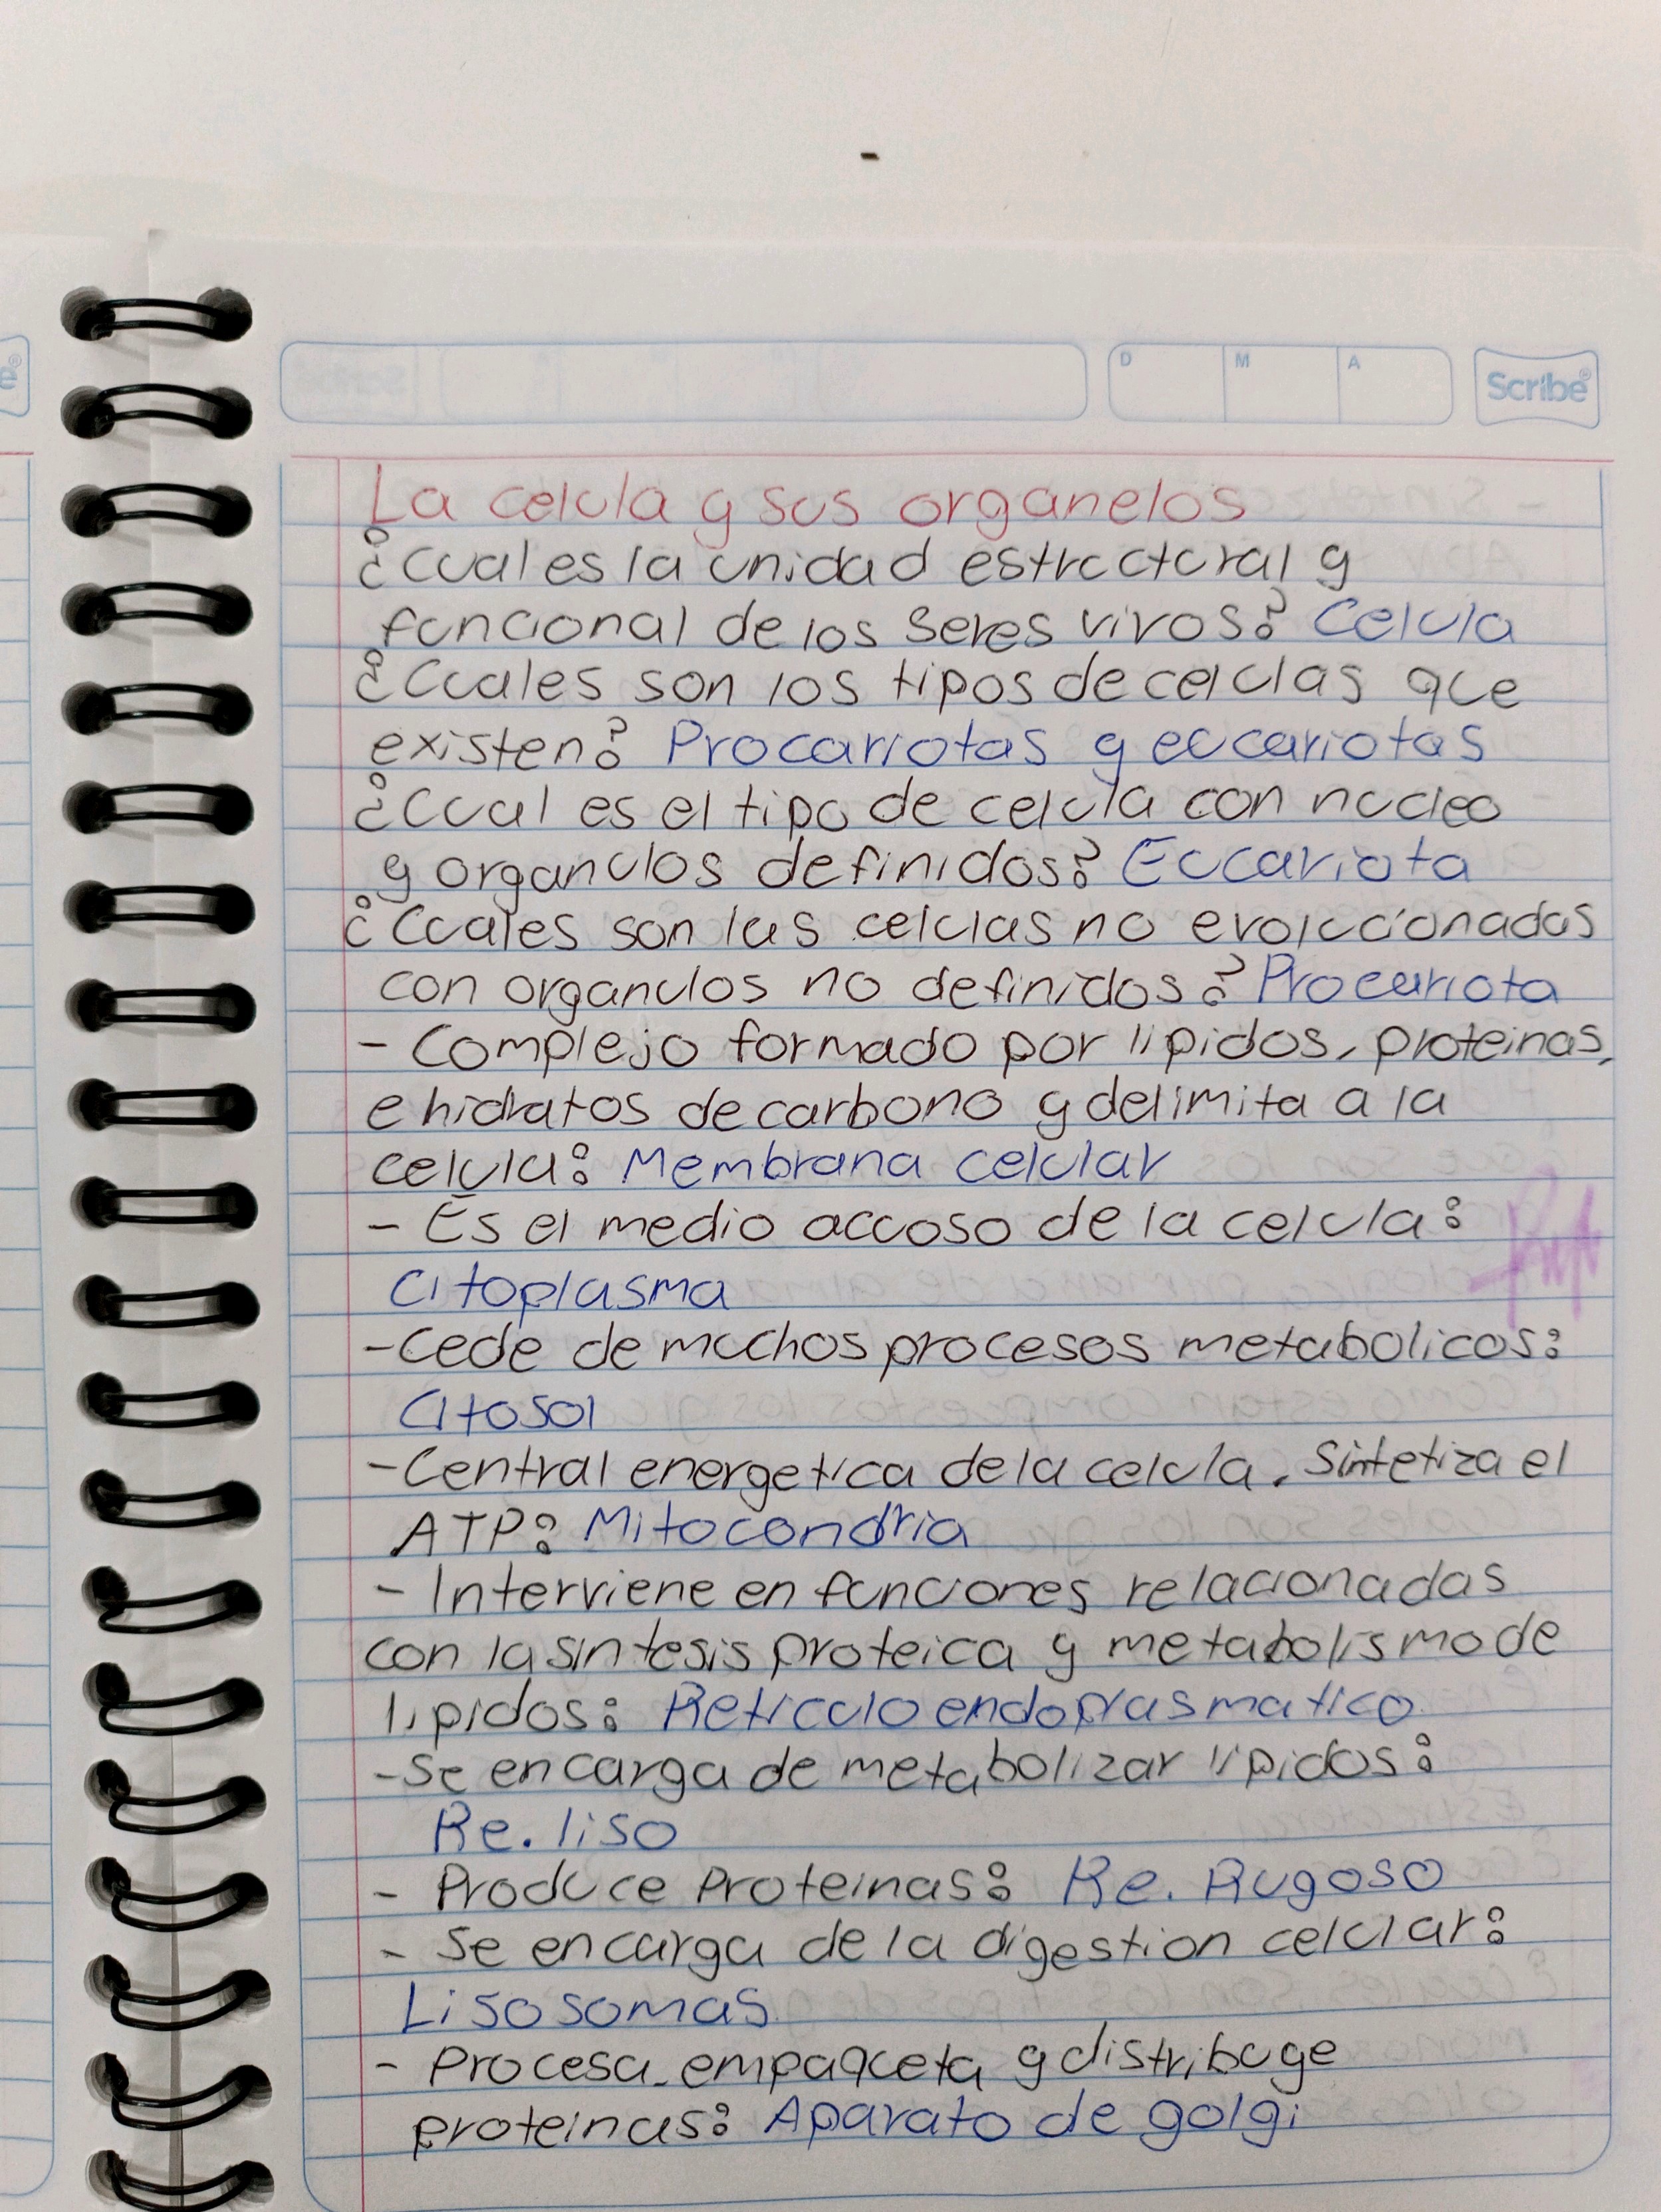 D M A Scribe®
La celula y sus organelos
¿Cual es la unidad estructural y
funcional de los seres vivos? Celula
¿Cuales son los tipos de celulas que
existen? Procariotas y eucariotas
¿Cual es el tipo de celula con nucleo
y organulos definidos? Eucariota
¿Cuales son las celulas no evoluccionadas
con organulos no definidos? Procariota
- Complejo formado por lipidos, proteinas,
e hidratos de carbono y delimita a la
celula: Membrana celular
- Es el medio acuoso de la celula:
Citoplasma
- Cede de muchos procesos metabolicos:
Citosol
- Central energetica de la celula. Sintetiza el
ATP: Mitocondria
- Interviene en funciones relacionadas
con la sintesis proteica y metabolismo de
lipidos: Reticulo endoplasmatico
- Se encarga de metabolizar lipidos:
Re. liso
- Produce Proteinas: Re. Rugoso
- Se encarga de la digestion celular:
Lisosomas
- Procesa, empaqueta y distribuye
proteinas: Aparato de golgi